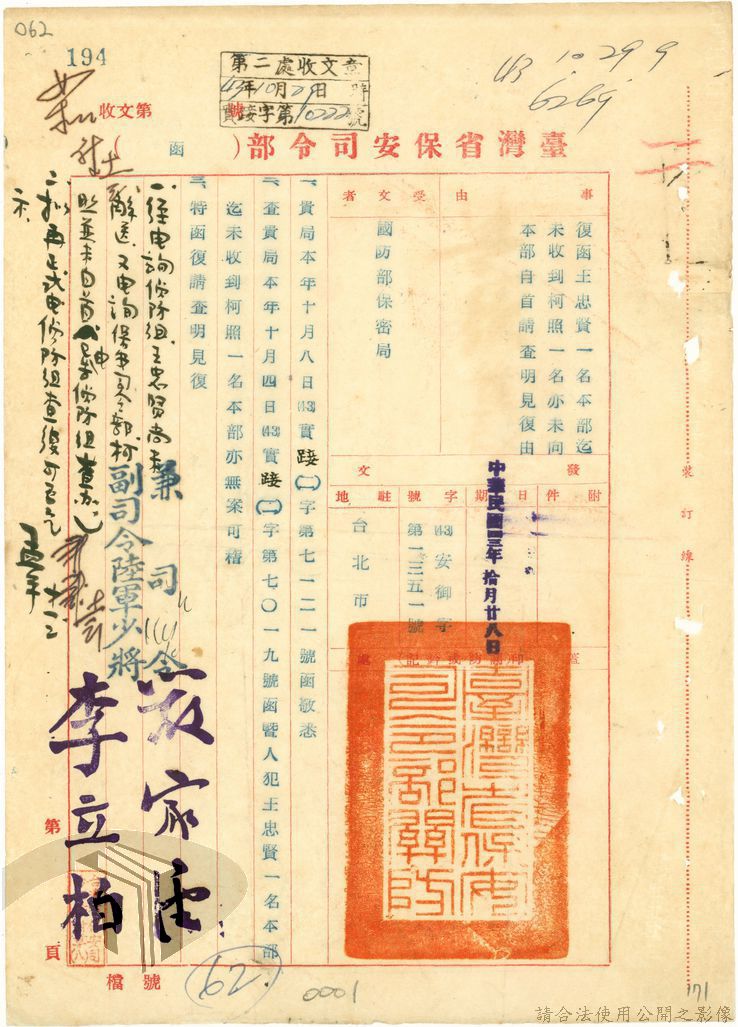 062
194
第二處收文章
43年10月29日 時
實踐字第10222號
收文第 號
43.10.29.9
6269
臺灣省保安司令部
(函)
事由
復函王忠賢一名本部迄
未收到柯照一名亦未向
本部自首請查明見復由
受文者
國防部保密局
發文
附件
日期
中華民國四三年拾月廿八日
字號
(43)安御字
第一三五一號
駐地
台北市
臺灣省保安司令部關防
一、貴局本年十月八日(43)實踐(二)字第七一二一號函敬悉
二、查貴局本年十月四日(43)實踐(二)字第七〇一九號函暨人犯王忠賢一名本部
迄未收到柯照一名本部亦無案可稽
三、特函復請查明見復
兼司令
嚴家淦
副司令陸軍少將
李立柏
一、經電詢偵防組王忠賢尚未
解送、又電詢保安司令部柯
照並未自首
二、擬再正式電偵防組查復可否乞
示
裝訂線
第 頁
檔號
62
0001
171
請合法使用公開之影像